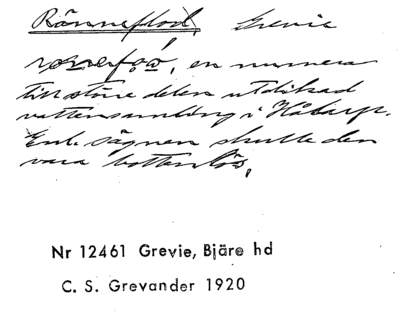 Rönneflod, Grevie
en numera
till större delen utdikad
vattensamling i Håbarp.
Enl. sägnen skulle den
vara bottenlös.
Nr 12461 Grevie, Bjäre hd
C. S. Grevander 1920